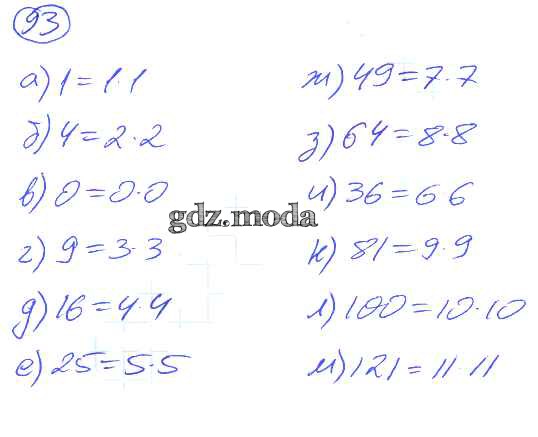 93
а) 1 = 1·1
б) 4 = 2·2
в) 0 = 0·0
г) 9 = 3·3
д) 16 = 4·4
е) 25 = 5·5
ж) 49 = 7·7
з) 64 = 8·8
и) 36 = 6 6
к) 81 = 9·9
л) 100 = 10·10
м) 121 = 11·11
gdz.moda